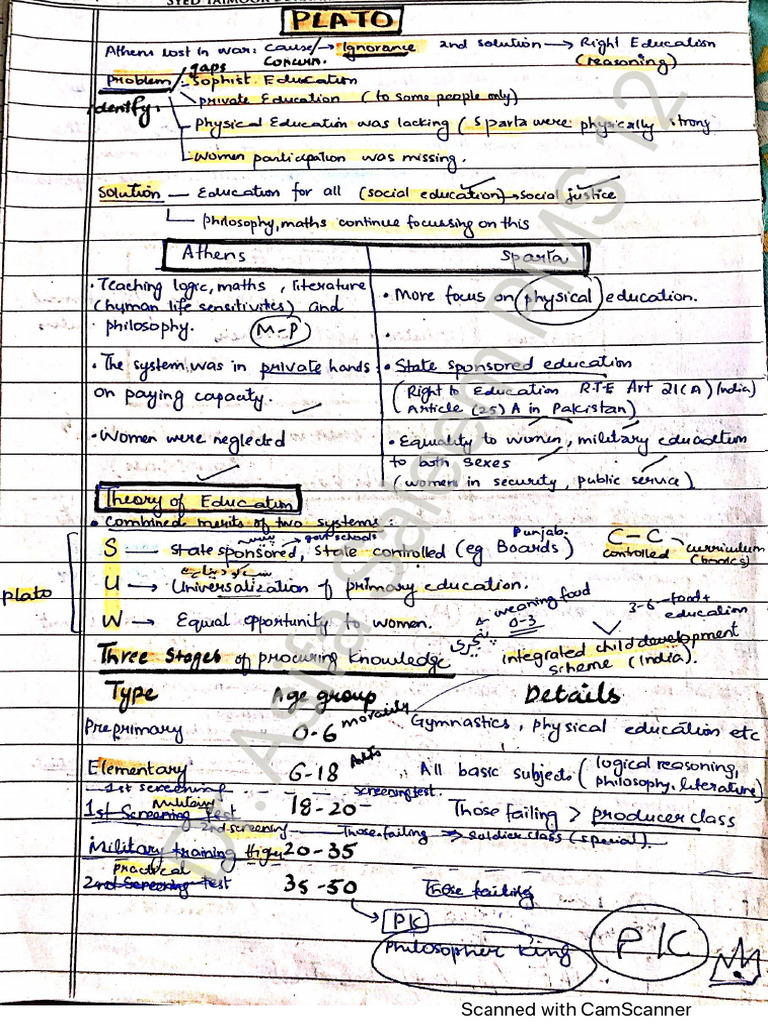 PLATO
Athens lost in war: cause/concern → Ignorance and solution → Right Education (reasoning)
Problem/gaps identify:
- Sophist Education
- private Education (to some people only)
- physical Education was lacking (Sparta were physically strong
- Women participation was missing.
Solution — Education for all (social education) → social justice
- philosophy, maths continue focussing on this
Athens
Sparta
• Teaching logic, maths, literature
(human life sensitivities) and
philosophy. M-P
• More focus on physical education.
•
• The system was in private hands
on paying capacity.
• State sponsored education
(Right to Education RTE Art 21(A) (India)
Article (25) A in Pakistan)
• Women were neglected
• Equality to women, military education
to both sexes
(women in security, public service)
Theory of Education
• Combined merits of two systems:
Plato
govt schools
Punjab.
S — State sponsored, State controlled (eg Boards)
C - C
controlled
curriculum
(books)
U → Universalization of primary education.
W → Equal opportunity to women.
weaning food
0-3
3-6 - food + education
integrated child development
scheme (India).
Three Stages of procuring knowledge
Type Age group Details
Preprimary 0-6 morality Gymnastics, physical education etc
Elementary 6-18 Arts All basic subjects (logical reasoning,
philosophy, literature)
1st screening screening test.
1st Screening Test Military 18-20 Those failing > producer class
2nd screening Those failing → soldier class (special).
Military training High 20-35
practical
2nd Screening Test 35-50 Those failing
PK
Philosopher King
PK
Dr. Asifa Saleem PMS 12
Scanned with CamScanner